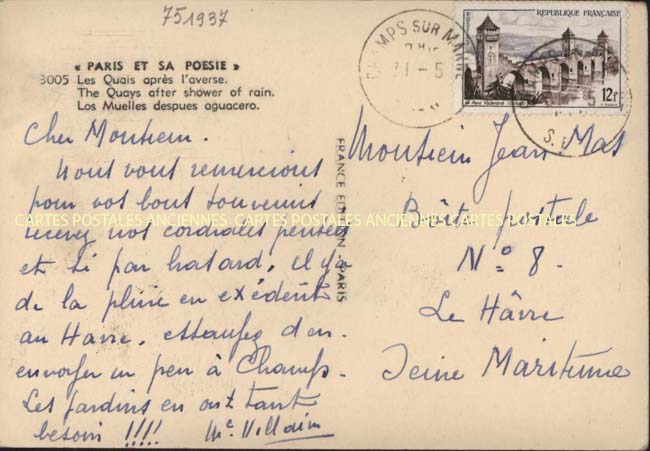 751937
« PARIS ET SA POESIE »
3005 Les Quais après l'averse.
The Quays after shower of rain.
Los Muelles despues aguacero.
Cher Monsieur.
Nous vous remercions
pour vos bons souvenirs
recevez nos cordiales pensées
et si par hasard, il y a
de la pluie en excédent
au Havre, essayez d'en
envoyer un peu à Champs.
Les jardins en ont tant
besoin !!!! Me Villain
FRANCE EDITION - PARIS
CHAMPS SUR MARNE
REPUBLIQUE FRANÇAISE
12F
Monsieur Jean Mas
Boîte postale
N° 8.
Le Hâvre
Seine Maritime
CARTES POSTALES ANCIENNES CARTES POSTALES ANCIENNES CARTES POSTALES